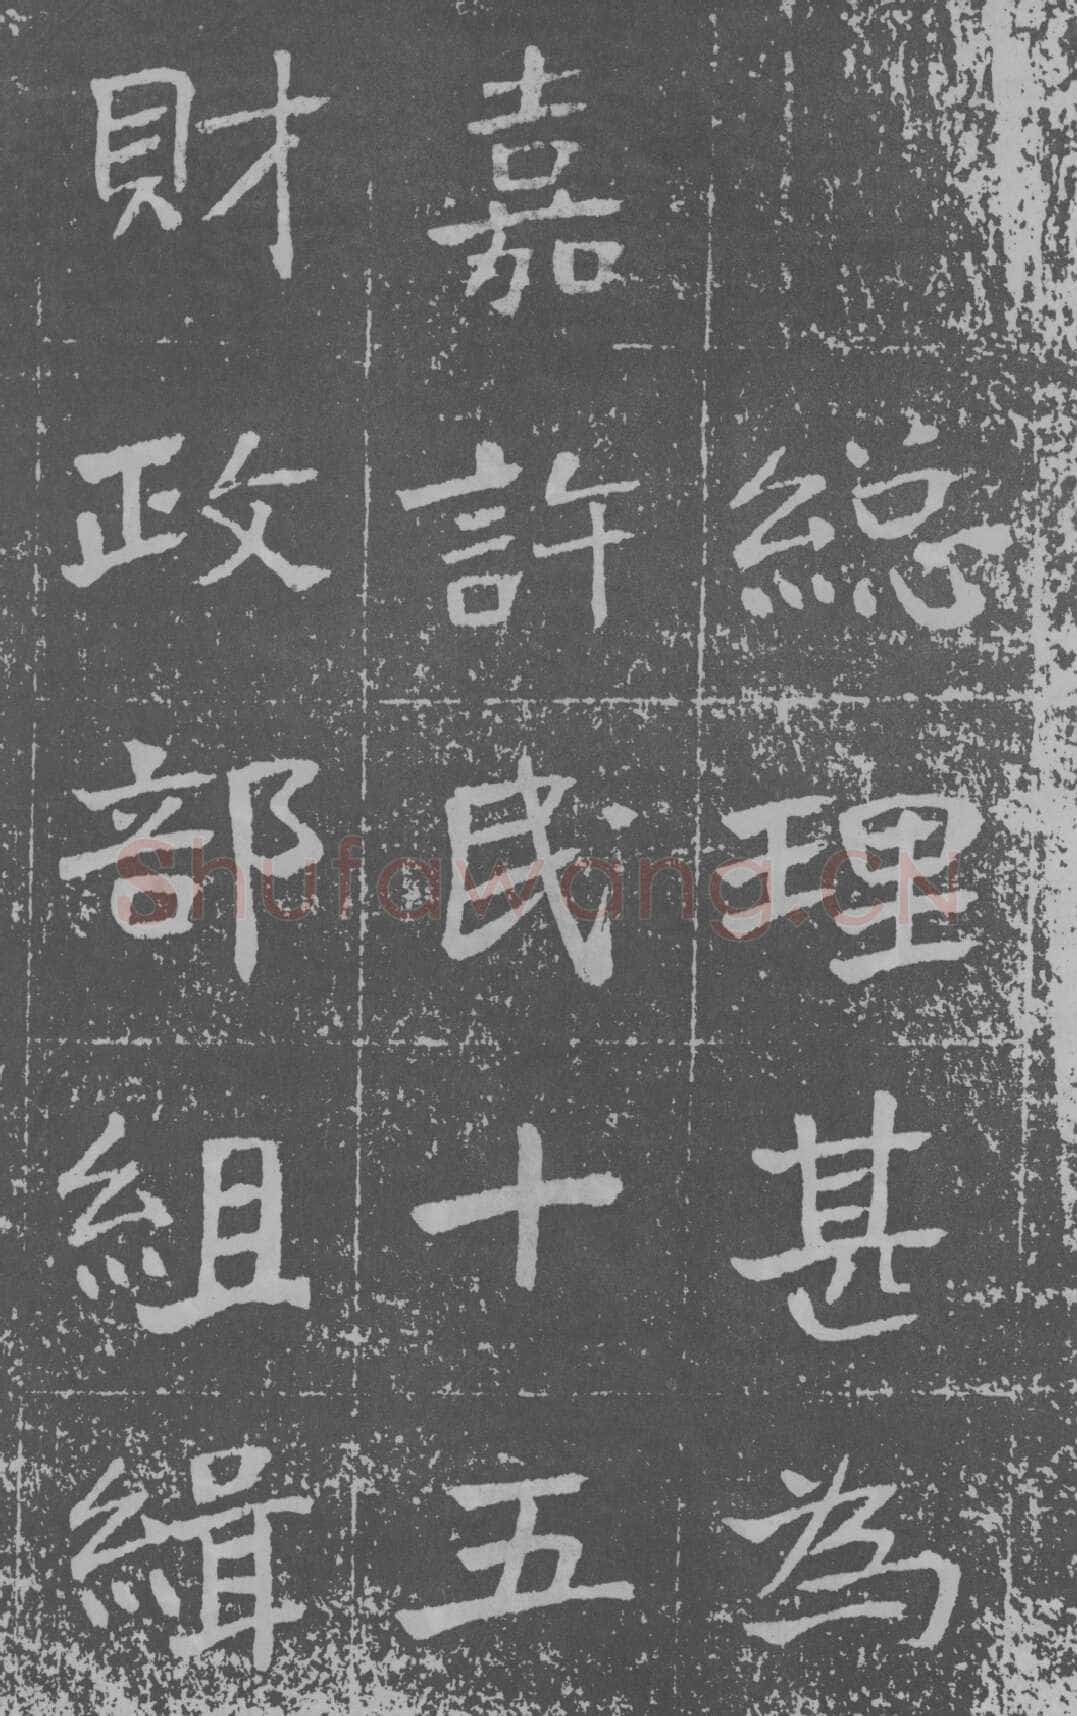 緫理甚為
嘉許民十五
財政部組緝
Shufawang.CN